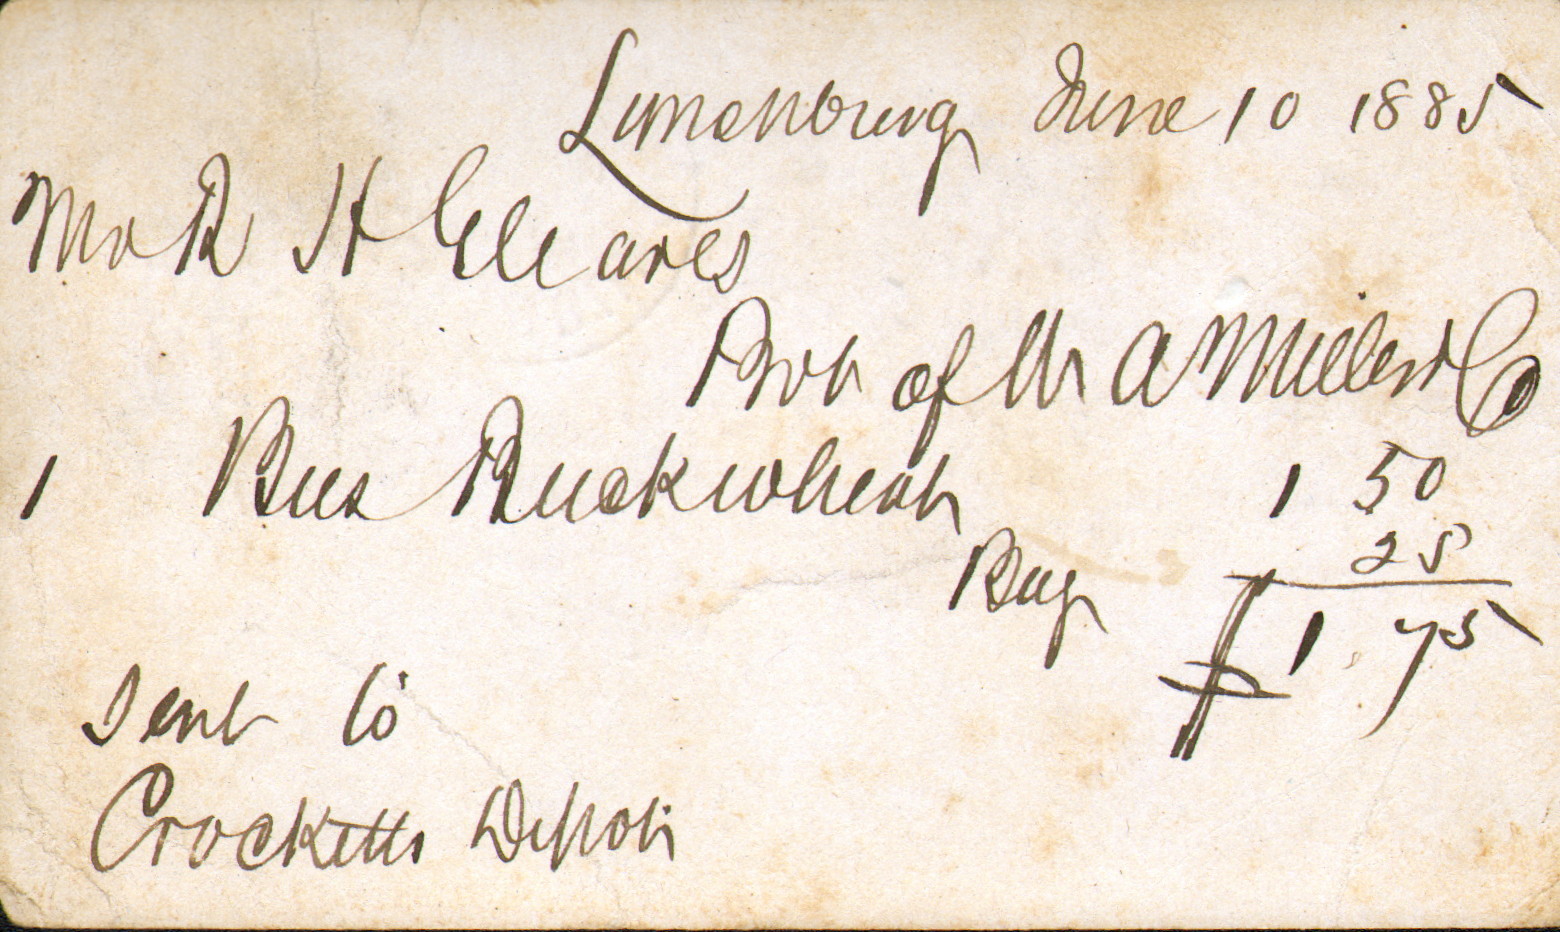 Lynchburg June 10 1885
Mr R H Gleaves
Bot of W A Miller & Co
1 Bus Buckwheat 1 50
Bag 25
$1 75
Sent to
Crocketts Depot